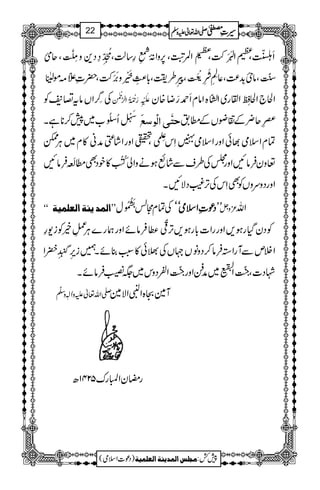 سیرتِ مصطفی صلی اللہ تعالٰی علیہ وسلم 22
اہلسنّت، عظیم البرکت، عظیم المرتبت، پروانۂ شمعِ رسالت، مجدّدِ دین و ملّت، حامیٔ
سنّت، ماحیٔ بدعت، عالمِ شریعت، پیرِ طریقت، باعثِ خیر و برکت، حضرتِ علامہ مولیٰنا
الحاج الحافظ القاری الشاہ امام احمد رضا خان علیہ رحمۃ الرحمٰن کی گراں مایہ تصانیف کو
عصرِ حاضر کے تقاضوں کے مطابق حتَّی الْوُسعَ سَہْل اُسلُوب میں پیش کرنا ہے۔
تمام اسلامی بھائی اور اسلامی بہنیں اس علمی، تحقیقی اور اشاعتی مدنی کام میں ہر ممکن
تعاون فرمائیں اور مجلس کی طرف سے شائع ہونے والی کُتُب کا خود بھی مطالعہ فرمائیں
اور دوسروں کو بھی اس کی ترغیب دلائیں۔
اللہ عزوجل "دعوتِ اسلامی" کی تمام مجالس بشُمُول "المدینة العلمیة"
کو دن گیارہویں اور رات بارہویں ترقّی عطا فرمائے اور ہمارے ہر عملِ خیر کو زیورِ
اخلاص سے آراستہ فرما کر دونوں جہاں کی بھلائی کا سبب بنائے۔ ہمیں زیرِ گنبدِ خضرا
شہادت، جنّت البقیع میں مدفن اور جنّت الفردوس میں جگہ نصیب فرمائے۔
آمین بجاہ النبی الامین صلی اللہ تعالٰی علیہ واٰلہ وسلم
رمضان المبارک ۱۴۲۵ھ
پیش کش: مجلس المدینة العلمیة (دعوتِ اسلامی)